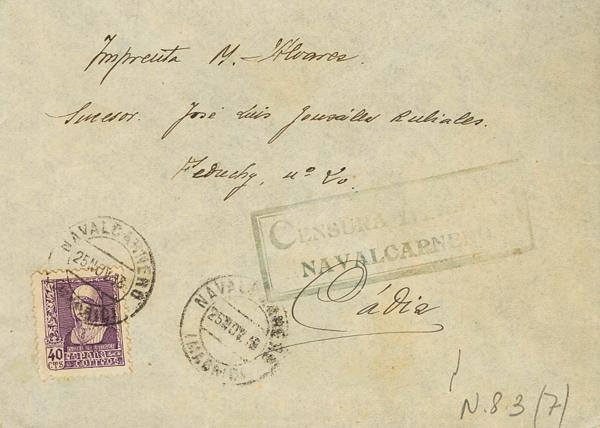 Imprenta M. Alvarez.
Sucesor. José Luis González Rubiales.
Feduchy, nº 20
CENSURA MILITAR
NAVALCARNERO
Cádiz
NAVALCARNERO
25 NOV 38
(MADRID)
40
CTS
ESPAÑA
CORREOS
NAVALCARNERO
25 NOV 38
(MADRID)
N.83(7)